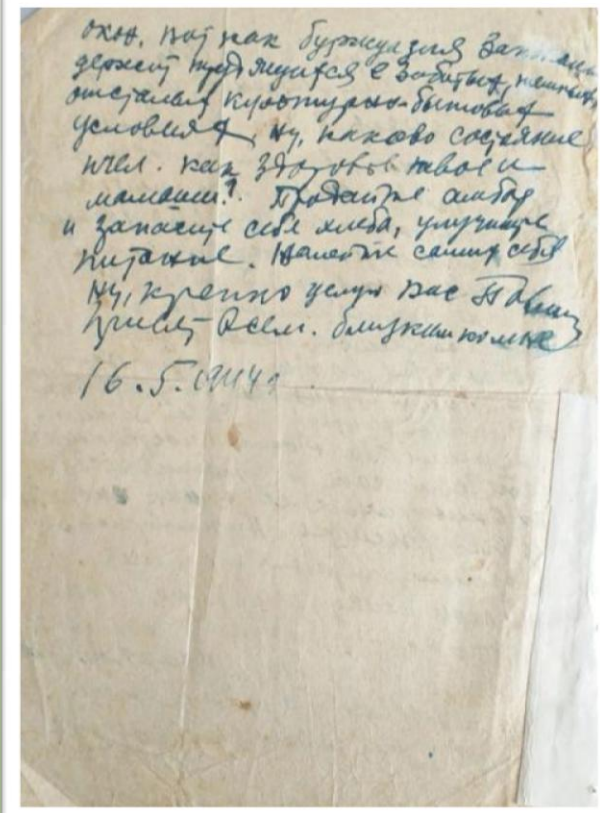 окон. Вот как буржуазия
держит трудящихся в забитых,
отсталых культурно-бытовых
условиях. Ну, каково состояние
пчел. Как здоровье твое и
мамаши? Продайте амбар
и запасите себе хлеба, улучшите
питание. Жалейте сами себя
Ну, крепко целую Вас
Привет всем близким ко мне
16.5.1944г